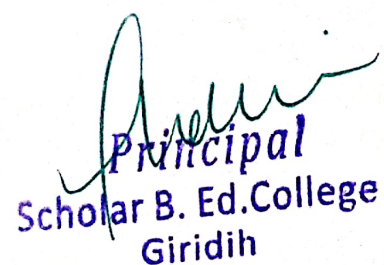 Principal
Scholar B. Ed.College
Giridih